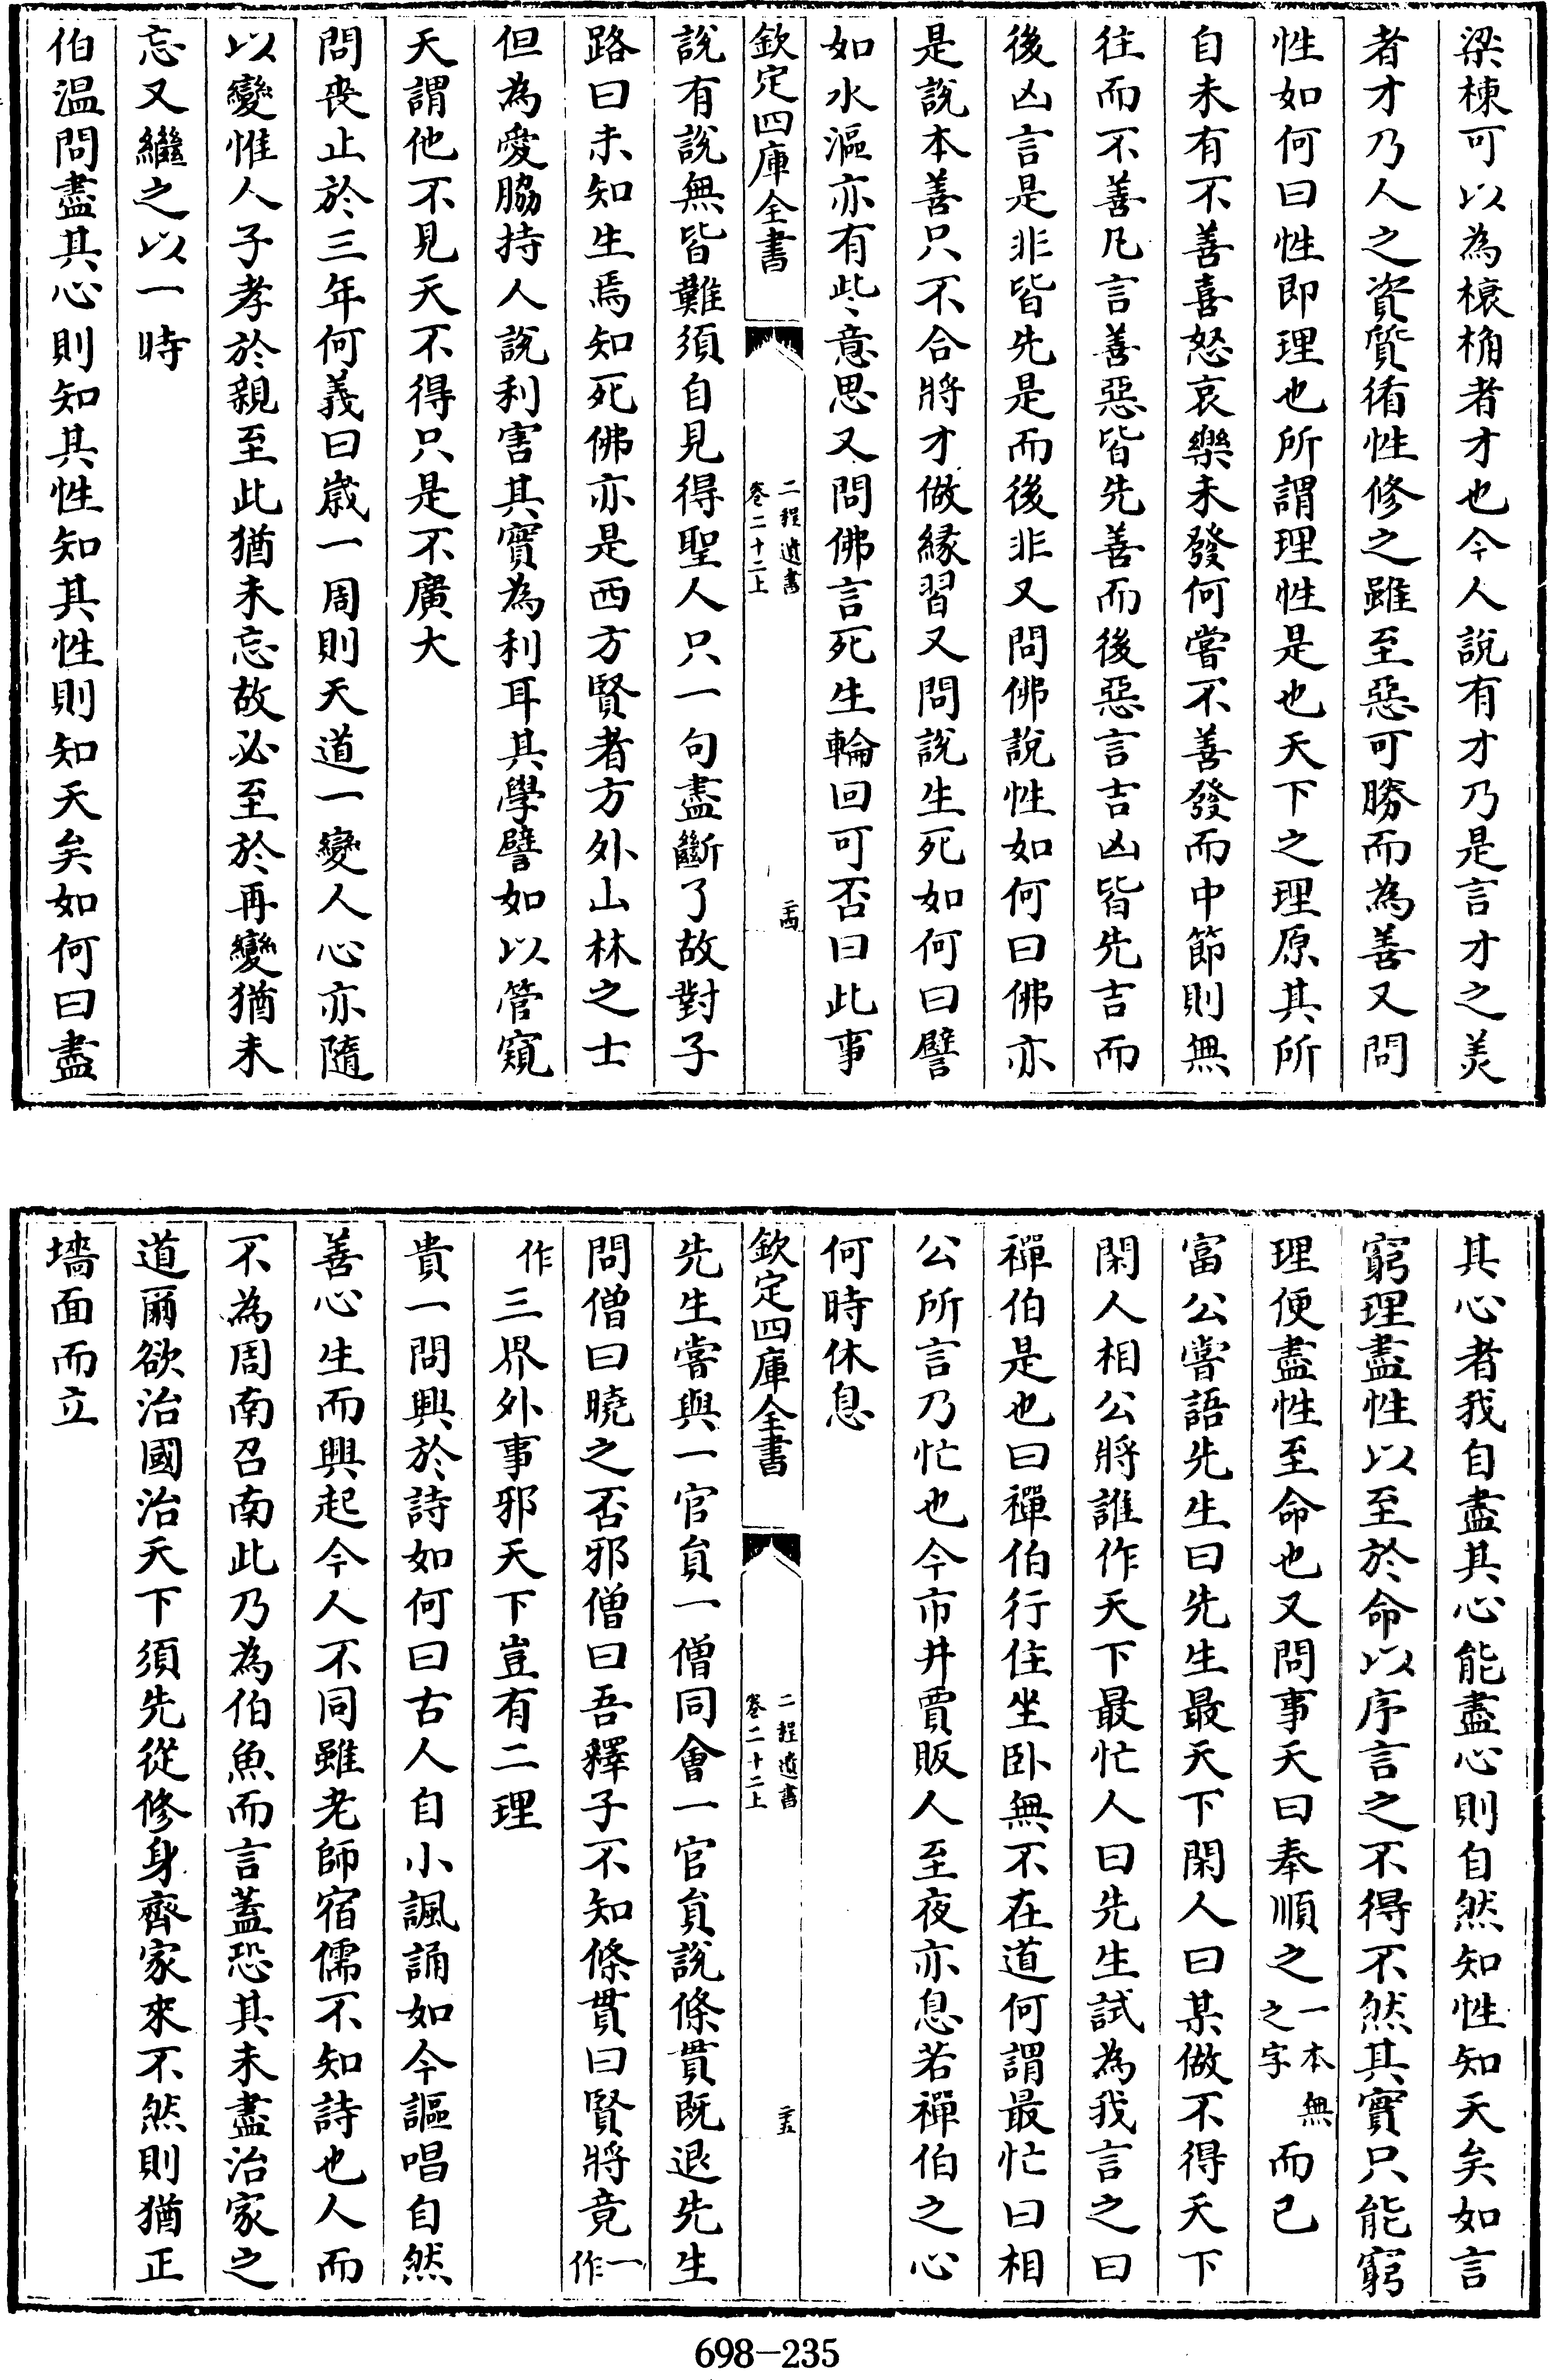 梁棟可以為榱桷者才也今人說有才乃是言才之美
者才乃人之資質循性修之雖至惡可勝而為善又問
性如何曰性即理也所謂理性是也天下之理原其所
自未有不善喜怒哀樂未發何嘗不善發而中節則無
往而不善凡言善惡皆先善而後惡言吉凶皆先吉而
後凶言是非皆先是而後非又問佛說性如何曰佛亦
是說本善只不合將才做緣習又問說生死如何曰譬
如水漚亦有些意思又問佛言死生輪回可否曰此事
欽定四庫全書
二程遺書
卷二十二上
二十四
說有說無皆難須自見得聖人只一句盡斷了故對子
路曰未知生焉知死佛亦是西方賢者方外山林之士
但為愛脇持人說利害其實為利耳其學譬如以管窺
天謂他不見天不得只是不廣大
問喪止於三年何義曰歲一周則天道一變人心亦隨
以變惟人子孝於親至此猶未忘故必至於再變猶未
忘又繼之以一時
伯溫問盡其心則知其性知其性則知天矣如何曰盡
其心者我自盡其心能盡心則自然知性知天矣如言
窮理盡性以至於命以序言之不得不然其實只能窮
理便盡性至命也又問事天曰奉順之一本無之字而已
富公嘗語先生曰先生最天下閑人曰某做不得天下
閑人相公將誰作天下最忙人曰先生試為我言之曰
禪伯是也曰禪伯行住坐卧無不在道何謂最忙曰相
公所言乃忙也今市井賈販人至夜亦息若禪伯之心
何時休息
欽定四庫全書
二程遺書
卷二十二上
二十五
先生嘗與一官員一僧同會一官員說條貫既退先生
問僧曰曉之否邪僧曰吾釋子不知條貫曰賢將竟一作
作三界外事邪天下豈有二理
貴一問興於詩如何曰古人自小諷誦如今謳唱自然
善心生而興起今人不同雖老師宿儒不知詩也人而
不為周南召南此乃為伯魚而言蓋恐其未盡治家之
道爾欲治國治天下須先從修身齊家來不然則猶正
墻面而立
698-235